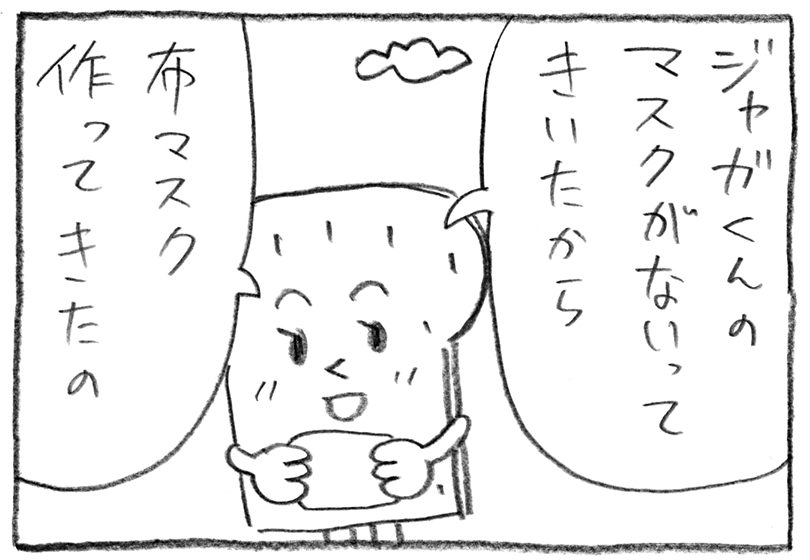 ジャガくんの
マスクがないって
きいたから
布マスク
作ってきたの